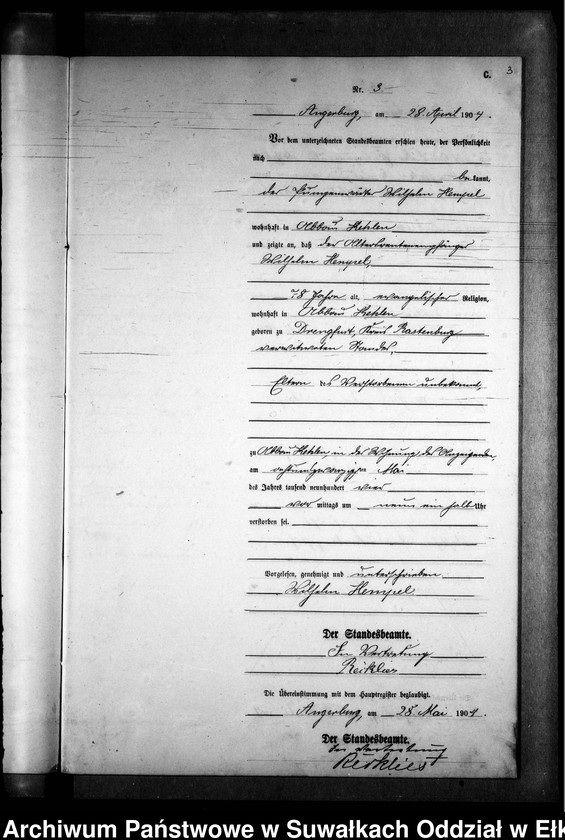 C.
3
Nr. 3.
Angerburg, am 28. April 1904.
Vor dem unterzeichneten Standesbeamten erschien heute, der Persönlichkeit
nach
bekannt,
der Wilhelm Hempel
wohnhaft in Abbau Kehlen
und zeigte an, daß der Altersrentenempfänger
Wilhelm Hempel,
78 Jahre alt, evangelischer Religion,
wohnhaft in Abbau Kehlen
geboren zu Drengfurt, Kreis Rastenburg
verwitweten Standes,
Eltern des Verstorbenen unbekannt,
zu Abbau Kehlen, in der Wohnung des Anzeigenden,
am Mai
des Jahres tausend neunhundert vier
vor mittags um neun ein halb Uhr
verstorben sei.
Vorgelesen, genehmigt und unterschrieben
Wilhelm Hempel
Der Standesbeamte.
In Vertretung
Reiklies
Die Übereinstimmung mit dem Hauptregister beglaubigt.
Angerburg, am 28. Mai 1904.
Der Standesbeamte.
In Vertretung
Reiklies
Archiwum Państwowe w Suwałkach Oddział w Ełk